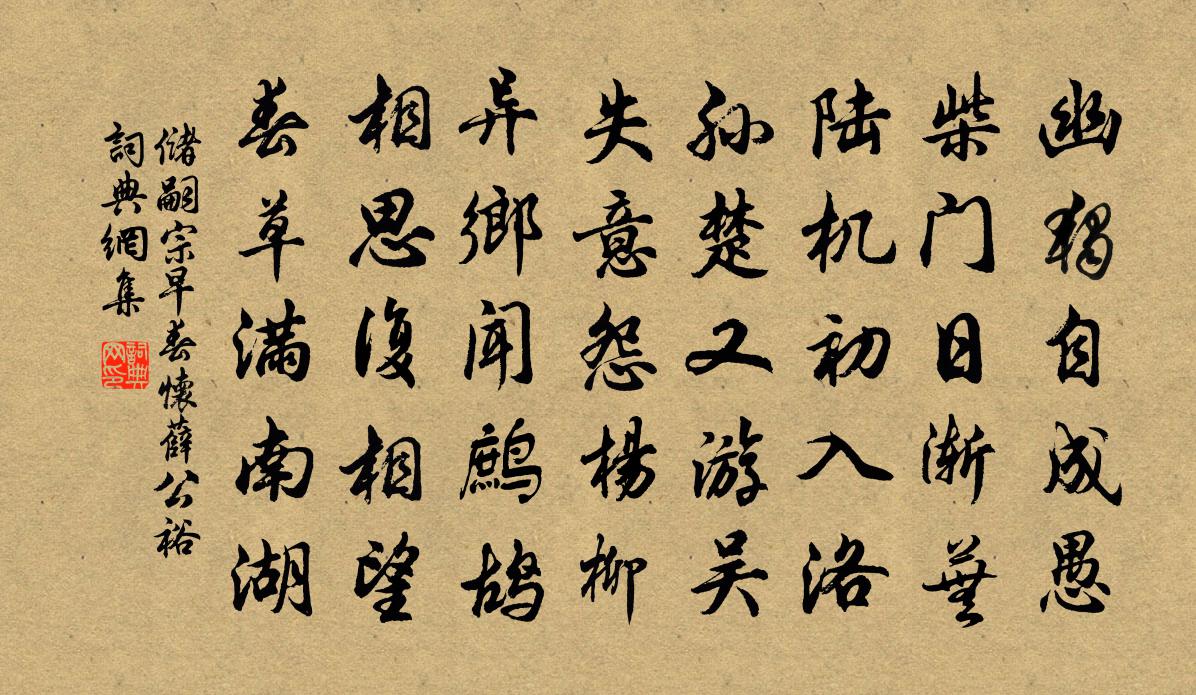 幽独自成愚
柴门日渐芜
陆机初入洛
孙楚又游吴
失意怨杨柳
异乡闻鹧鸪
相思复相望
春草满南湖
储嗣宗早春怀薛公裕
詞典網集
詞典網印